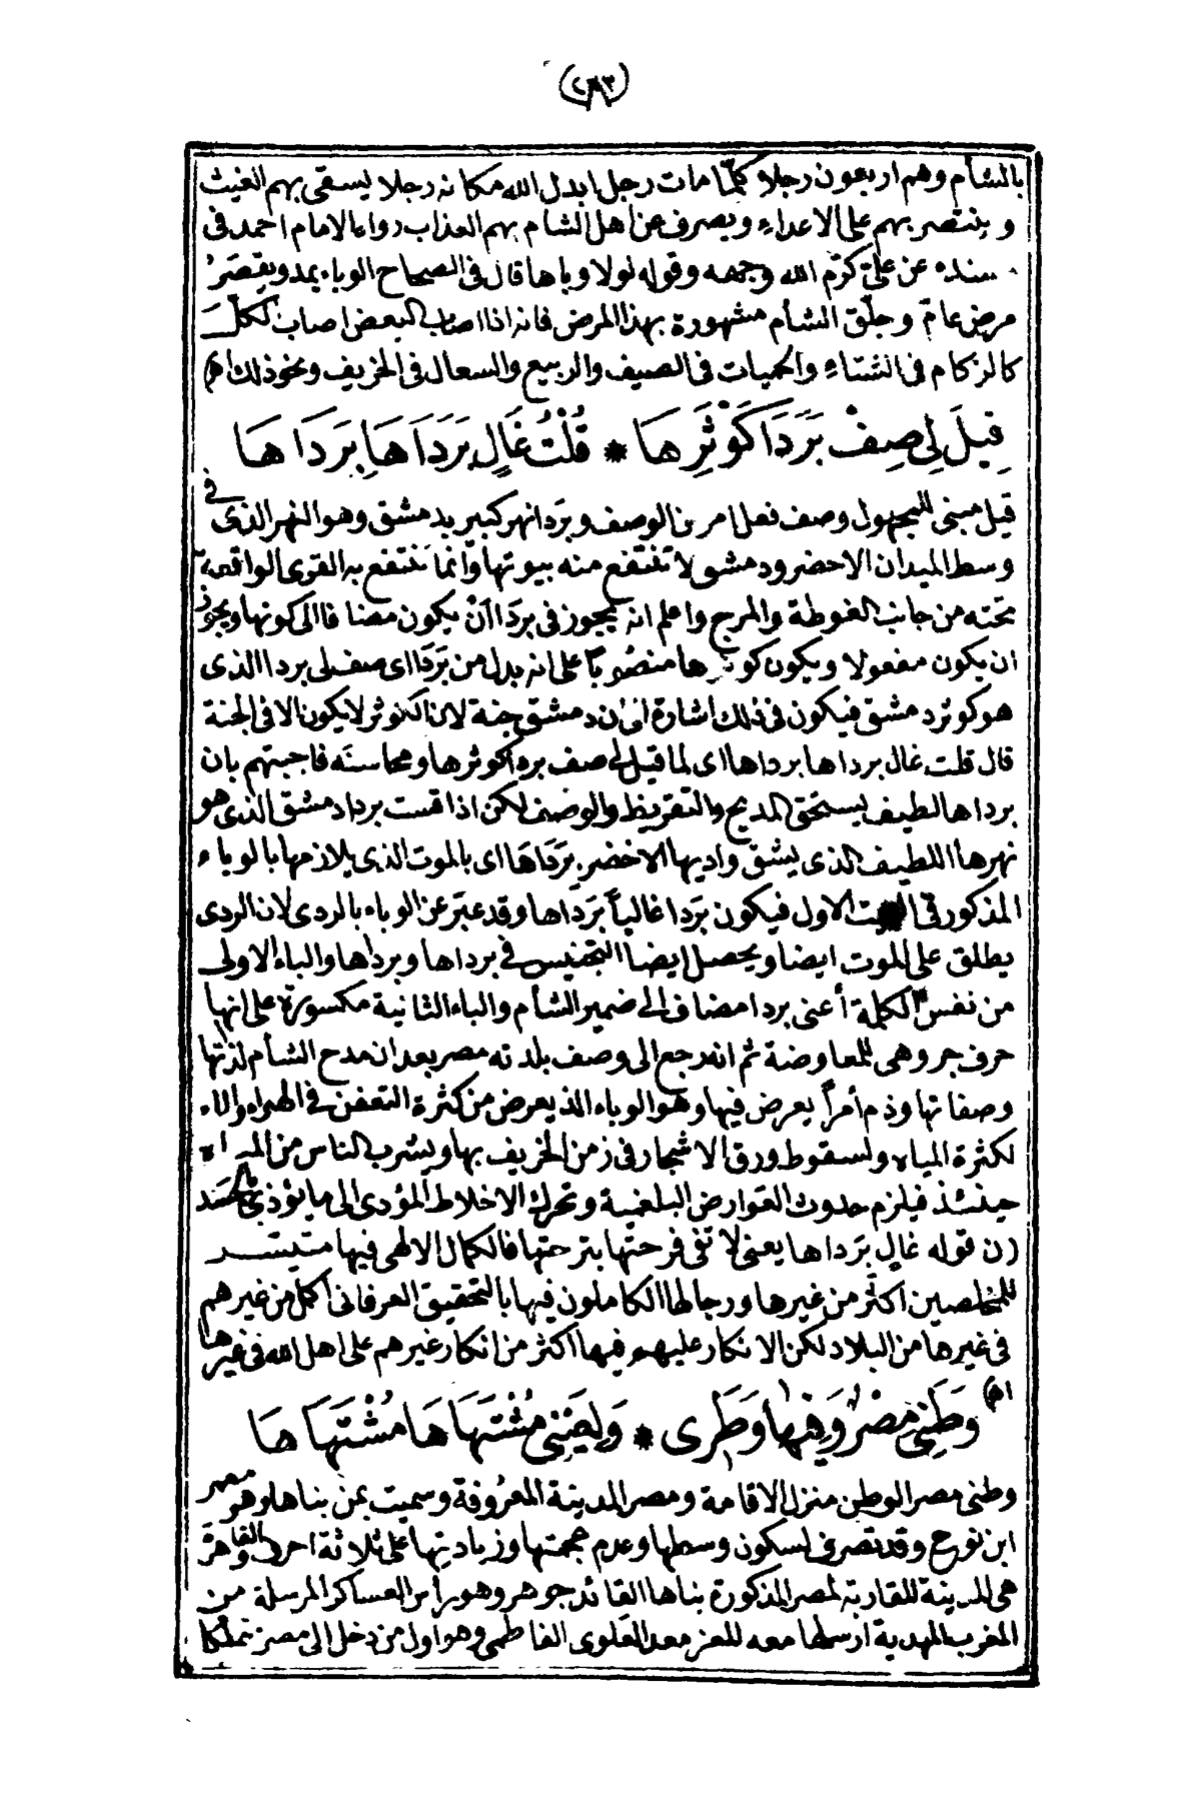 (٢٨٣)
بالشأم وهم اربعون رجلا كلما مات رجل ابدل الله مكانه رجلا يسقى بهم الغيث
وينتصر بهم على الاعداء ويصرف عن اهل الشام بهم العذاب رواه الامام احمد فى
سنده عن علىّ كرّم الله وجهه وقوله لولا وباها قال فى الصحاح الوباء يمد ويقصَرُ
مرض عامّ وجلّق الشأم مشهورة بهذا المرض فانه اذا اصاب البعض اصاب الكلّ
كالزكام فى الشتاء والحميات فى الصيف والربيع والسعال فى الخريف ونحو ذلك اه)
قِيلَ لِى صِفْ بَرَدَا كَوْثَرِهَا * قُلْتُ غَالٍ بَرَدَاهَا بِرَدَاهَا
قيل مبنى للمجهول وصف فعل امر من الوصف وبَردا نهر كبير بدمشق وهو النهر الذى فى
وسط الميدان الاخضر ودمشق لا تنتفع منه بيوتها وانما تنتفع به القرى الواقعة
تحته من جانب الغوطة والمرج واعلم انه يجوز فى بردَا انْ يكون مضافا الى كوثرها ويجوز
ان يكون مفعولا ويكون كوثرها منصوبا على انه بدل من بَرَدَا اى صف لى بردا الذى
هو كوثر دمشق فيكون فى ذلك اشارة الى ان دمشق جنة لان الكوثر لا يكون الا فى الجنة
قال قلت غال برداها برداها اى لما قيل لى صف بردا كوثرها ومحاسنه فاجبتهم بان
برداها لطيف يستحق المديح والتقريظ والوصف لكن اذا قست بردا دمشق الذى هو
نهرها اللطيف الذى يشق واديها الاخضر بَردَاهَا اى بالموت الذى يلازمها بالوباء
المذكور فى البيت الاول فيكون بَردا غالياً بَرداها وقد عبّر عن الوباء بالردى لان الردى
يطلق على الموت ايضا ويحصل ايضا التجنيس فى برداها وبرداها والباء الاولى
من نفس الكلمة أعنى بردا مضاف الى ضمير الشأم والباء الثانية مكسورة على انها
حرف جر وهى للمعاوضة ثم انه رجع الى وصف بلدته مصر بعد ان مدح الشأم لذاتها
وصفاتها وذم أمراً يعرض فيها وهو الوباء الذى يعرض من كثرة التعفن فى الهواء والماء
لكثرة المياه ولسقوط ورق الاشجار فى زمن الخريف بها ويشرب الناس من المياه
حينئذ فيلزم حدوث العوارض البلغمية وتحرك الاخلاط المؤدى الى ما يؤذى الجسد
(ن قوله غالٍ بَرداها يعنى لا تفى فرحتها بترحتها فالكمال الالهى فيها متيسّر
للمخلصين اكثر من غيرها ورجالها الكاملون فيها بالتحقيق العرفانى اكمل من غيرهم
فى غيرها من البلاد لكن الانكار عليهم فيها اكثر من انكار غيرهم على اهل الله فى غيرها
اه)
وَطَنِى مِصْرُ وَفِيهَا وَطَرِى * وَلِعَيْنِى مُشْتَهَاهَا مُشْتَهَاهَا
وطنى مصر الوطن منزل الاقامة ومصر المدينة المعروفة وسميت بمن بناها وهو مصر
ابن نوح وقد تصرف لسكون وسطها وعدم عجمتها وزيادتها على ثلاثة احرف والقاهرة
هى المدينة المقاربة لمصر المذكورة بناها القائد جوهر وهو رأس العساكر المرسلة من
المغرب المهدية ارسلها معه المعز معد العلوى الفاطمى وهو اول من دخل الى مصر متملكا